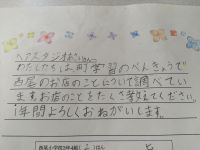 ヘアスタジオポンさんへ
わたしたちは町学習のべんきょうで
西尾のお店のことについて調べてい
ますお店のことをたくさん教えてください。
1年間よろしくおねがいします。
西尾小学校2年4組